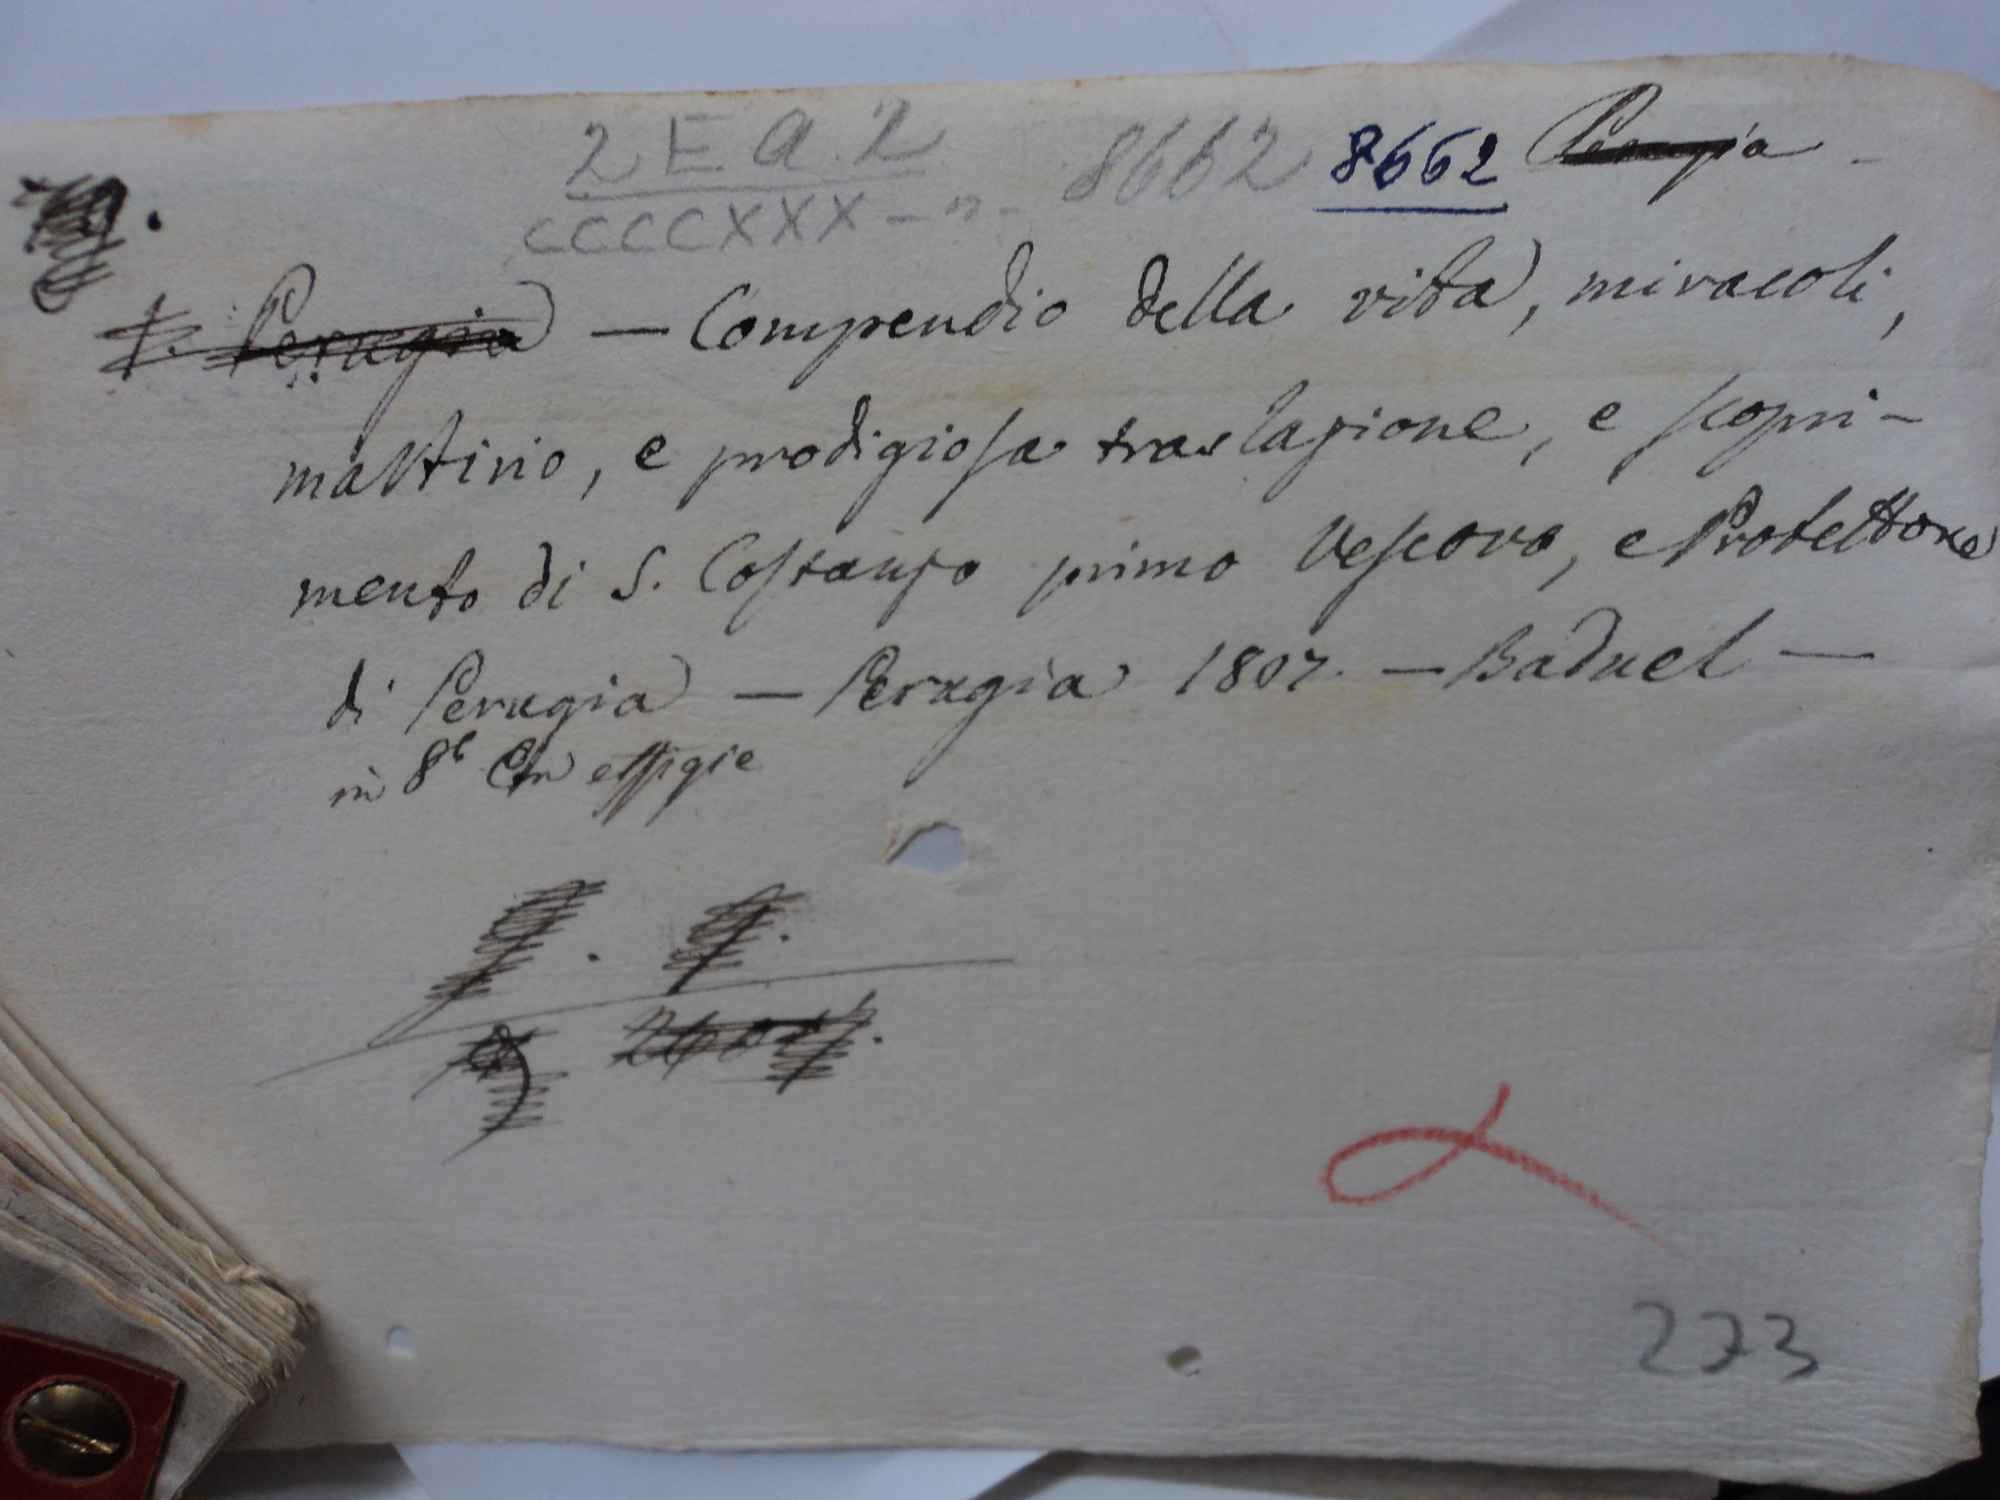 2 E a. 2 8662 8662 Perugia -
CCCCXXX - n -
Perugia — Compendio della vita, miracoli,
martirio, e prodigiosa traslazione, e scopri-
mento di S. Costanzo primo Vescovo, e Protettore
di Perugia — Perugia 1807. — Baduel —
in 8º Con effigie
273